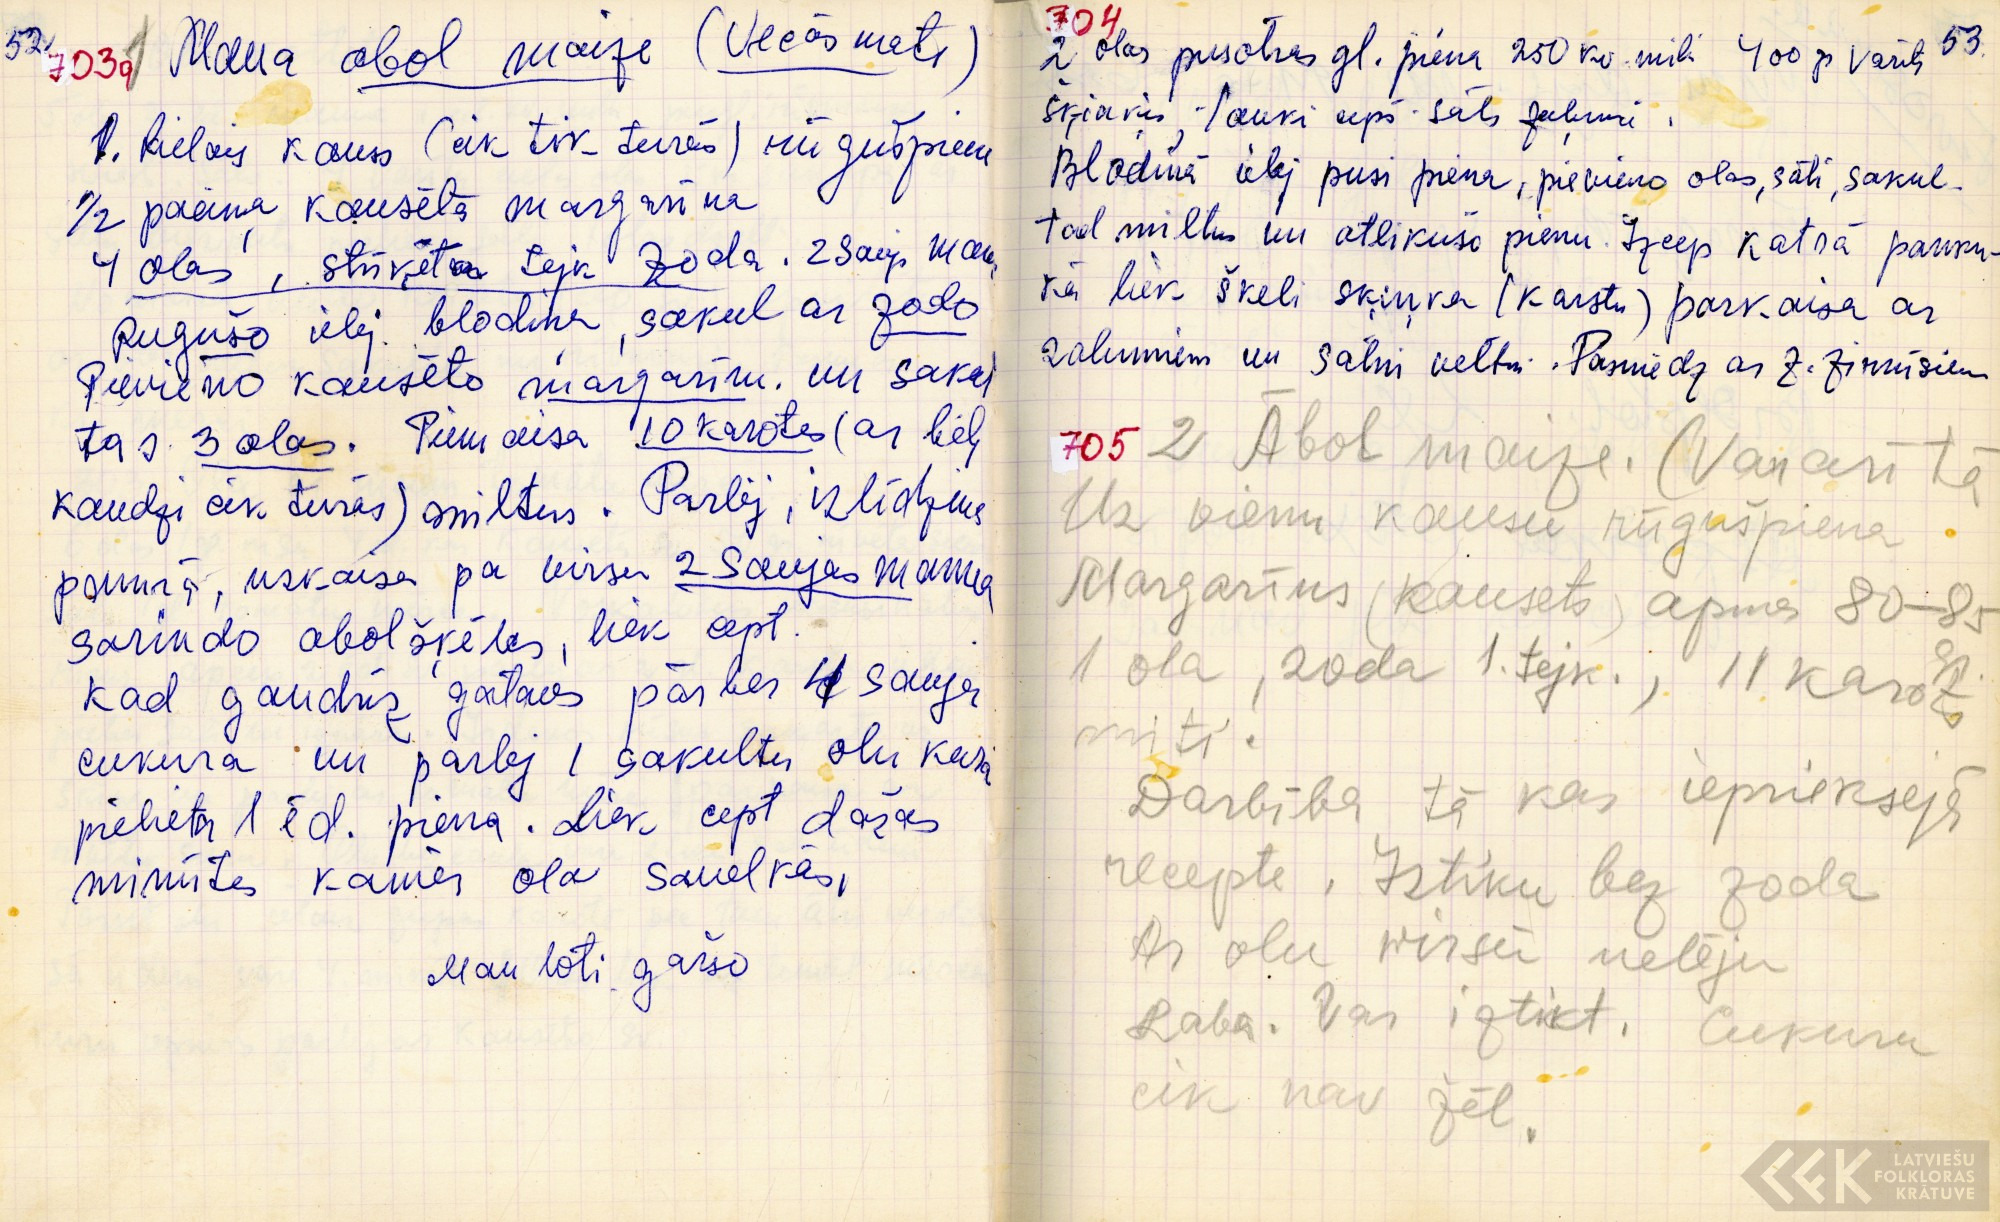 52.
703a Mana abol maize (Vecās mate)
1. Lielais kauss (cik tik turās) rūgušpiena
1/2 paciņa kausēta margarīna
4 olas, stūkēta tejk zoda. 2 Sauj mana
Rugušo ielej blodiņa, sakul ar zodo
Pievieno kausēto margarīnu. un sakul
tas 3 olas. Piemaisa 10 karotes (ar liel
kaudzi cik turās) miltus. Parlej, izlīdzina
pannā, uzkaisa pa virsu 2 Saujas manna
sarindo abolšķēles, liek cept.
Kad gandrīz gatavs pārber 4 sauja
cukura un parlej 1 sakultu olu kura
pielieta 1 ēd. piena. Liek cept dažas
minūtes kamēr ola savelkās,
Man ļoti garšo
704
53.
2 olas pusotras gl. piena 250 kv. milt 400 g varīts
šķiņķis, lauki ceps. sāls zaļumi.
Blodiņā ielej pusi piena, pievieno olas, sāli, sakul.
tad miltus un atlikušo pienu. Izcep katrā panku-
kā liek šķeli šķiņķa (karstu) parkaisa ar
zalumiem un satin veltni. Pasniedz ar z. zirnīsiem
705 2 Ābol maize. (Var arī tā
Uz vienu kausu rūgušpiena
Margarīns (kausēts) apmes 80-85
gr.
1 ola, zoda 1. tejk., 11 karots
milti.
Darbība tā kas iepriekšejā
recepte. Iztiku bez zoda
Ar olu virsū nelēju
Laba. Var iztikt. Cukuru
cik nav žēl.
LATVIEŠU
FOLKLORAS
KRĀTUVE